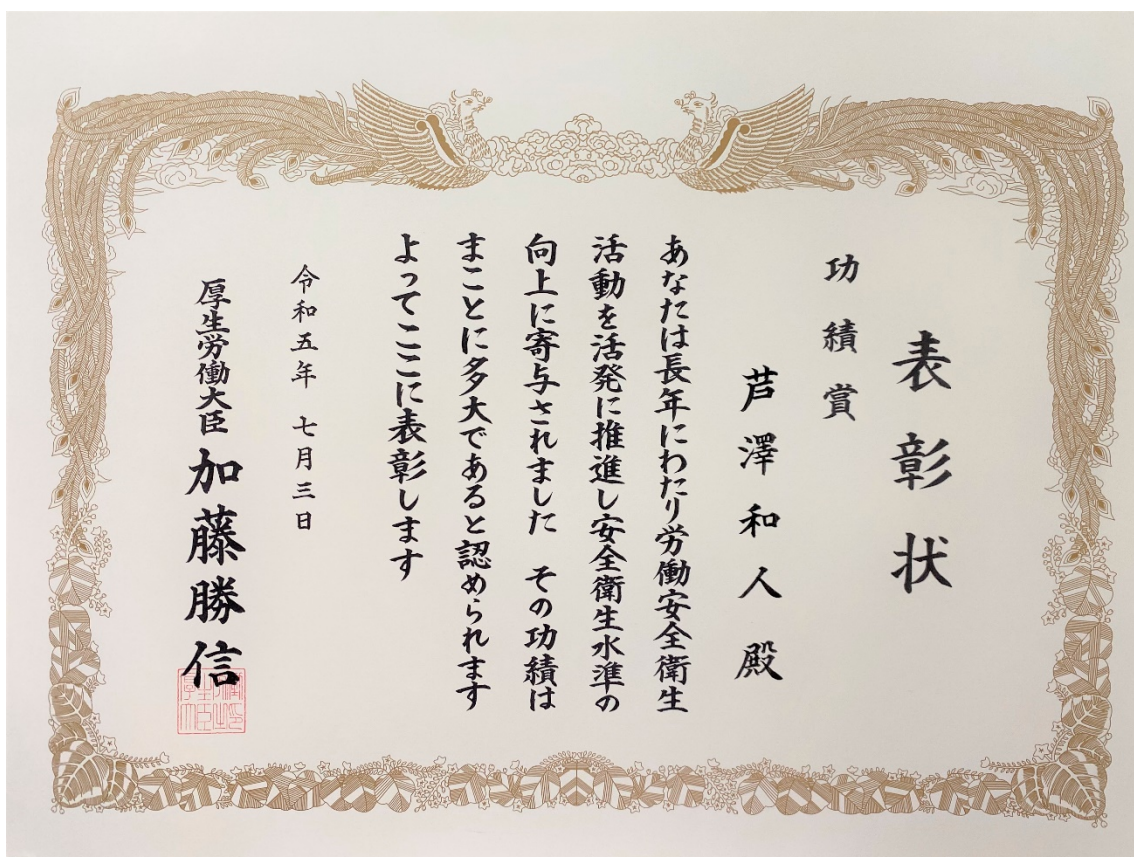 表彰状
功績賞
芦澤和人殿
あなたは長年にわたり労働安全衛生
活動を活発に推進し安全衛生水準の
向上に寄与されました その功績は
まことに多大であると認められます
よってここに表彰します
令和五年 七月三日
厚生労働大臣 加藤勝信